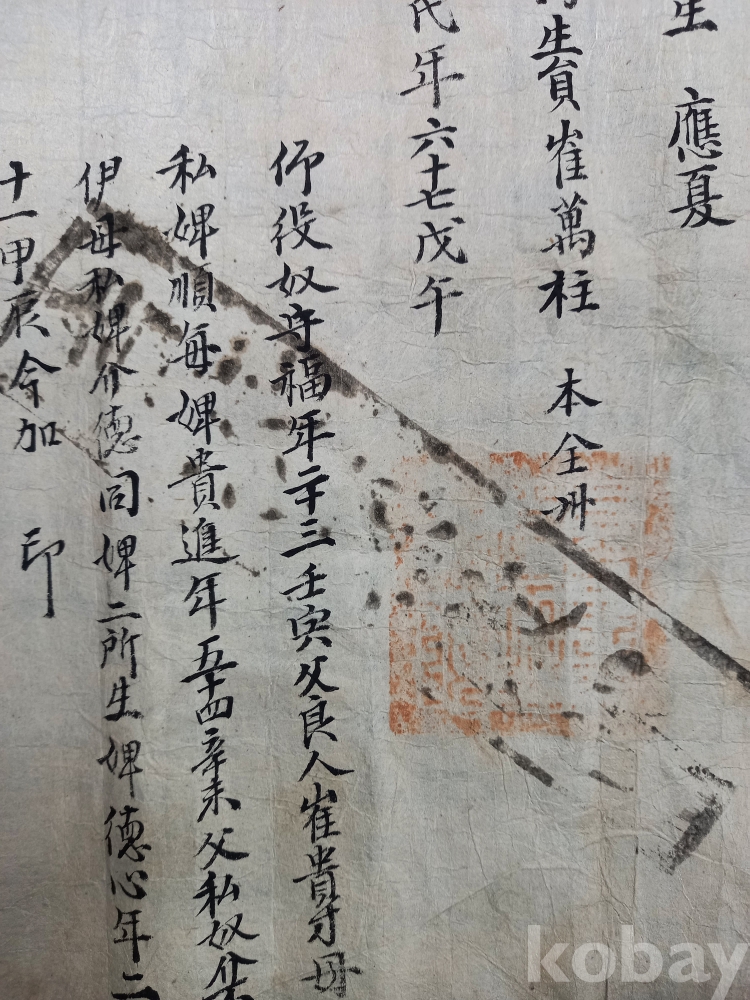 生 應夏
生員崔萬柱 本全州
氏年六十七戊午
仰役奴守福年二十三壬寅父良人崔貴才母
私婢順每婢貴進年五十四辛未父私奴介
伊母私婢介德同婢二所生婢德心年二
十一甲辰今加 印
kobay